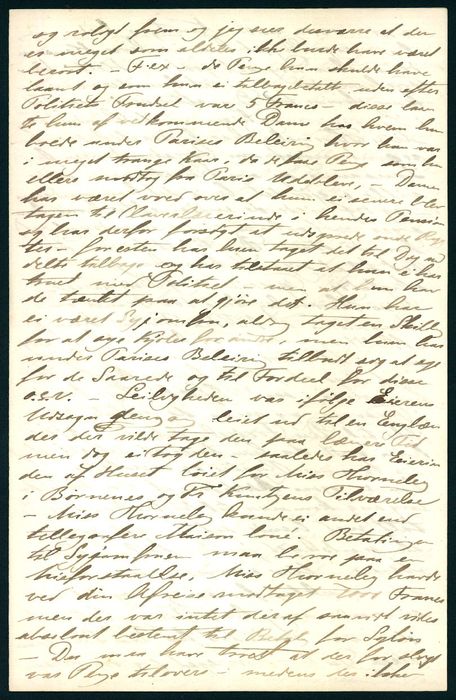 og roligt frem og jeg ser desværre at der
er meget som aldeles ikke burde have været
berørt. – F. ex – de Penge hun skulde have
laant og som hun ei tilbagebetalt, uden efter
Politiet Trudsel var 5 Francs – disse laan
te hun af vedkommende Dame hos hvem hun
boede under Parises Beleiring hvor hun var
i meget trange Kaar, da de faae Penge som hun
ellers modtog fra Paris udeblev, – Damen
har været vred over at hun ei senere
til i hendes Pension
og har derfor forsøgt at udsprede onde Ryg
ter – forresten har hun taget det til Dag med
delte tilbage og har erklæret at hun ei har
truet med Politiet men at hun har
de tænkt paa at gjøre det. Hun har
ei været Syjomfru, aldrig taget en Skilling
for at sye Kjoler for andre, men hun har
under Parises Beleiring tilbudt sig at sye
for de Saarede og til Fordeel for disse
o.s.v. – Leiligheden var ifølge Eierens
Udsagn leiet ud til en Englæn
der der vilde tage den paa længere Tid
men dog ei tog den – saaledes har Eierin
den af Huset løiet for Miss Thorneley
i Børnenes og Fr Tilværelse
– Miss Thorneley kunde ei andet end
tillægge Maison loué. Betalingen
til Syjomfruen maa bero paa en
Misforstaaelse, Miss Thorneley havde
ved din Afreise modtaget 1000 Francs
men der var intet deraf saavidt vides
absolut bestemt til for Syløn
– Du maa have troet at der for
var Penge tilovers – medens der ikke